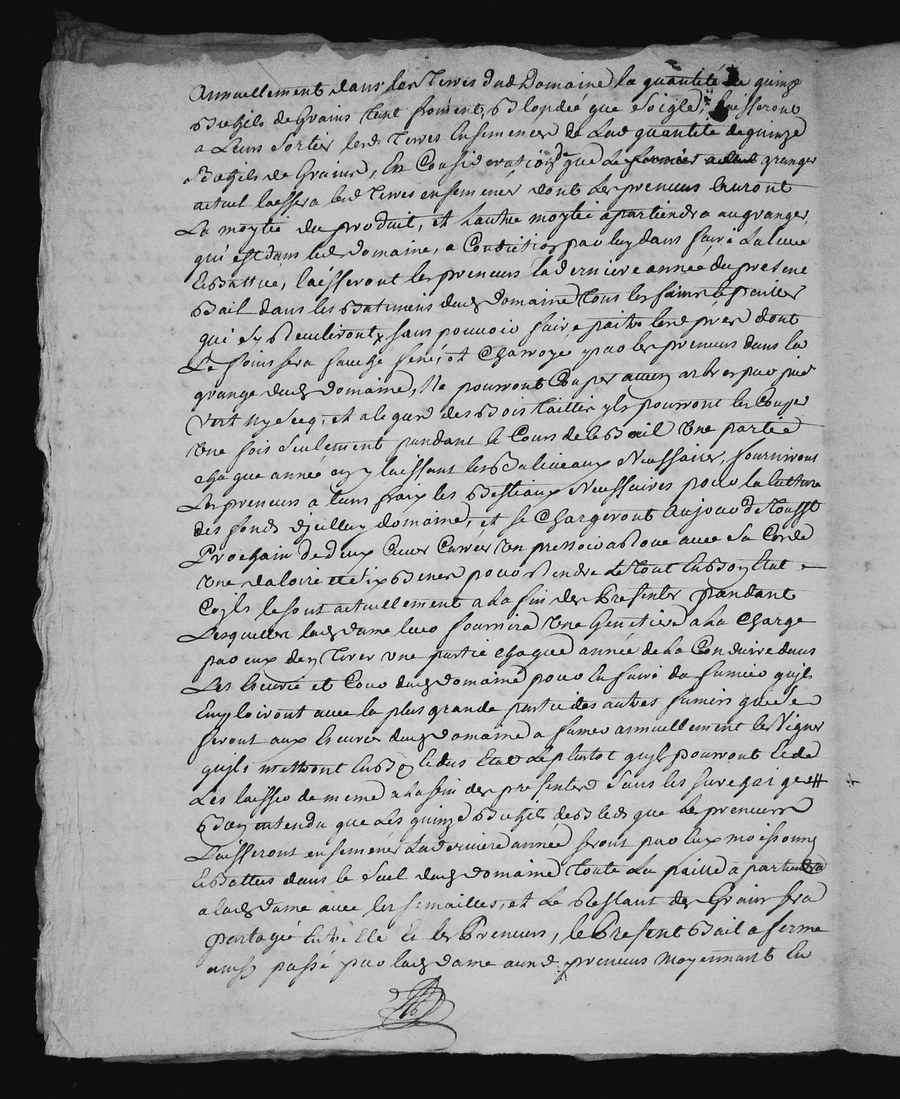 Annuellement dans les Terres dud Domaine la quantité de quinze
Bichets de Grains tant froment, Bled que Seigle, laisseront
a Leurs Sortie lesd Terres Ensemencés de Lad quantité de quinze
Bichets de Grains, En Consideration de que Le fermier actuel granger
actuel laissera lesd Terres ensemencé dont Les preneurs auront
La moytié du produit, et L'autre moytié apartiendra au granger
qui est dans led Domaine, a Condition par luy dans faire La
Ebattue, laisseront les preneurs la derniere année du present
Bail dans les Batimens dud Domaine Tous les foins & pailles
qui Sy Reculiront, sans pouvoir faire paitre lesd prés dont
Le foins sera fauché fené, et Charroyé par les preneurs dans la
grange dud Domaine, Ne pourront Couper aucun arbres par pied
Vert ny secq, et alegard des Bois taillis yls pourront les Couper
Une fois Seulement pandant le Cours de Bail Une partie
chaque année en y laissant les Baliveaux Necessaire, fourniront
Les preneurs a leurs fraix les Bestiaux Necessaires pour la Culture
des fonds domaine, et se Chargeront au jour de Tousst
Prochain de deux Cuves Carrées Un pressoir a Roue avec Sa Corde
Une et dix Benes pour Rendre Le tout En Bon Etat
Coyls le sont actuellement a la fin des Presentes pandant
Lesquelles lad dame leur fournira Une a La Charge
par eux den Tirer une partie chaque année de La Conduire dans
Les Ecurie et Cour dud Domaine pour En faire du fumier quyls
Employront avec la plus grande partie des autres fumiers que Se
feront aux Ecuries dud Domaine a fumer annuellement les Vignes
quyls mettront En Bon Etat Le plutot quyls pourront et de
Les laisser de meme a la fin des presentes Sans les
Bien entendu que Les quinze Bichets de Bleds que Les preneurs
Laisseront ensemencés La derniere année seront par Eux moissonné
Ebattus dans le Suel dud Domaine Toute La paille apartiendra
a lad dame avec les semailles, et Le Restant des Grains sera
partagé Entre Elle Et les Preneurs, le Present Bail a ferme
ainsy passé par lad dame ausd preneurs Moyennant En